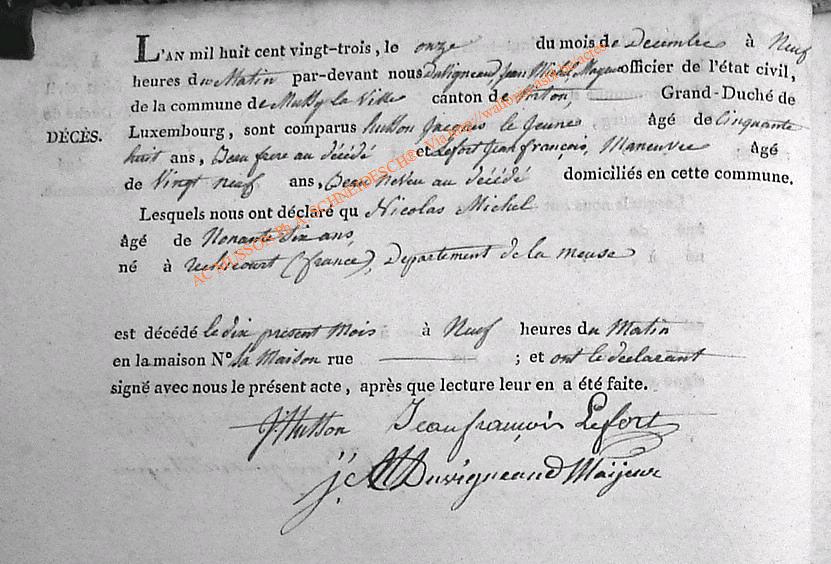 L'AN mil huit cent vingt-trois, le onze du mois de Decembre à Neuf
heures du Matin par-devant nous Duvigneaud Jean Michel Mayeur officier de l'état civil,
de la commune de Mussy la Ville canton de Virton, Grand-Duché de
DÉCÈS. Luxembourg, sont comparus husson Jacques le Jeune âgé de Cinquante
huit ans, Beau frere au décédé et Lefort Jean françois, Maneuvre âgé
de Vingt neuf ans, Beau neveu au décédé domiciliés en cette commune.
Lesquels nous ont déclaré qu Nicolas Michel
âgé de Nonante Six ans
né à (france), Departement de la meuse
est décédé le dix présent mois à Neuf heures du Matin
en la maison N° Sa Maison rue ; et ont le declarant
signé avec nous le présent acte, après que lecture leur en a été faite.
J. Husson Jean françois Lefort
j. M Duvigneaud Maijeur